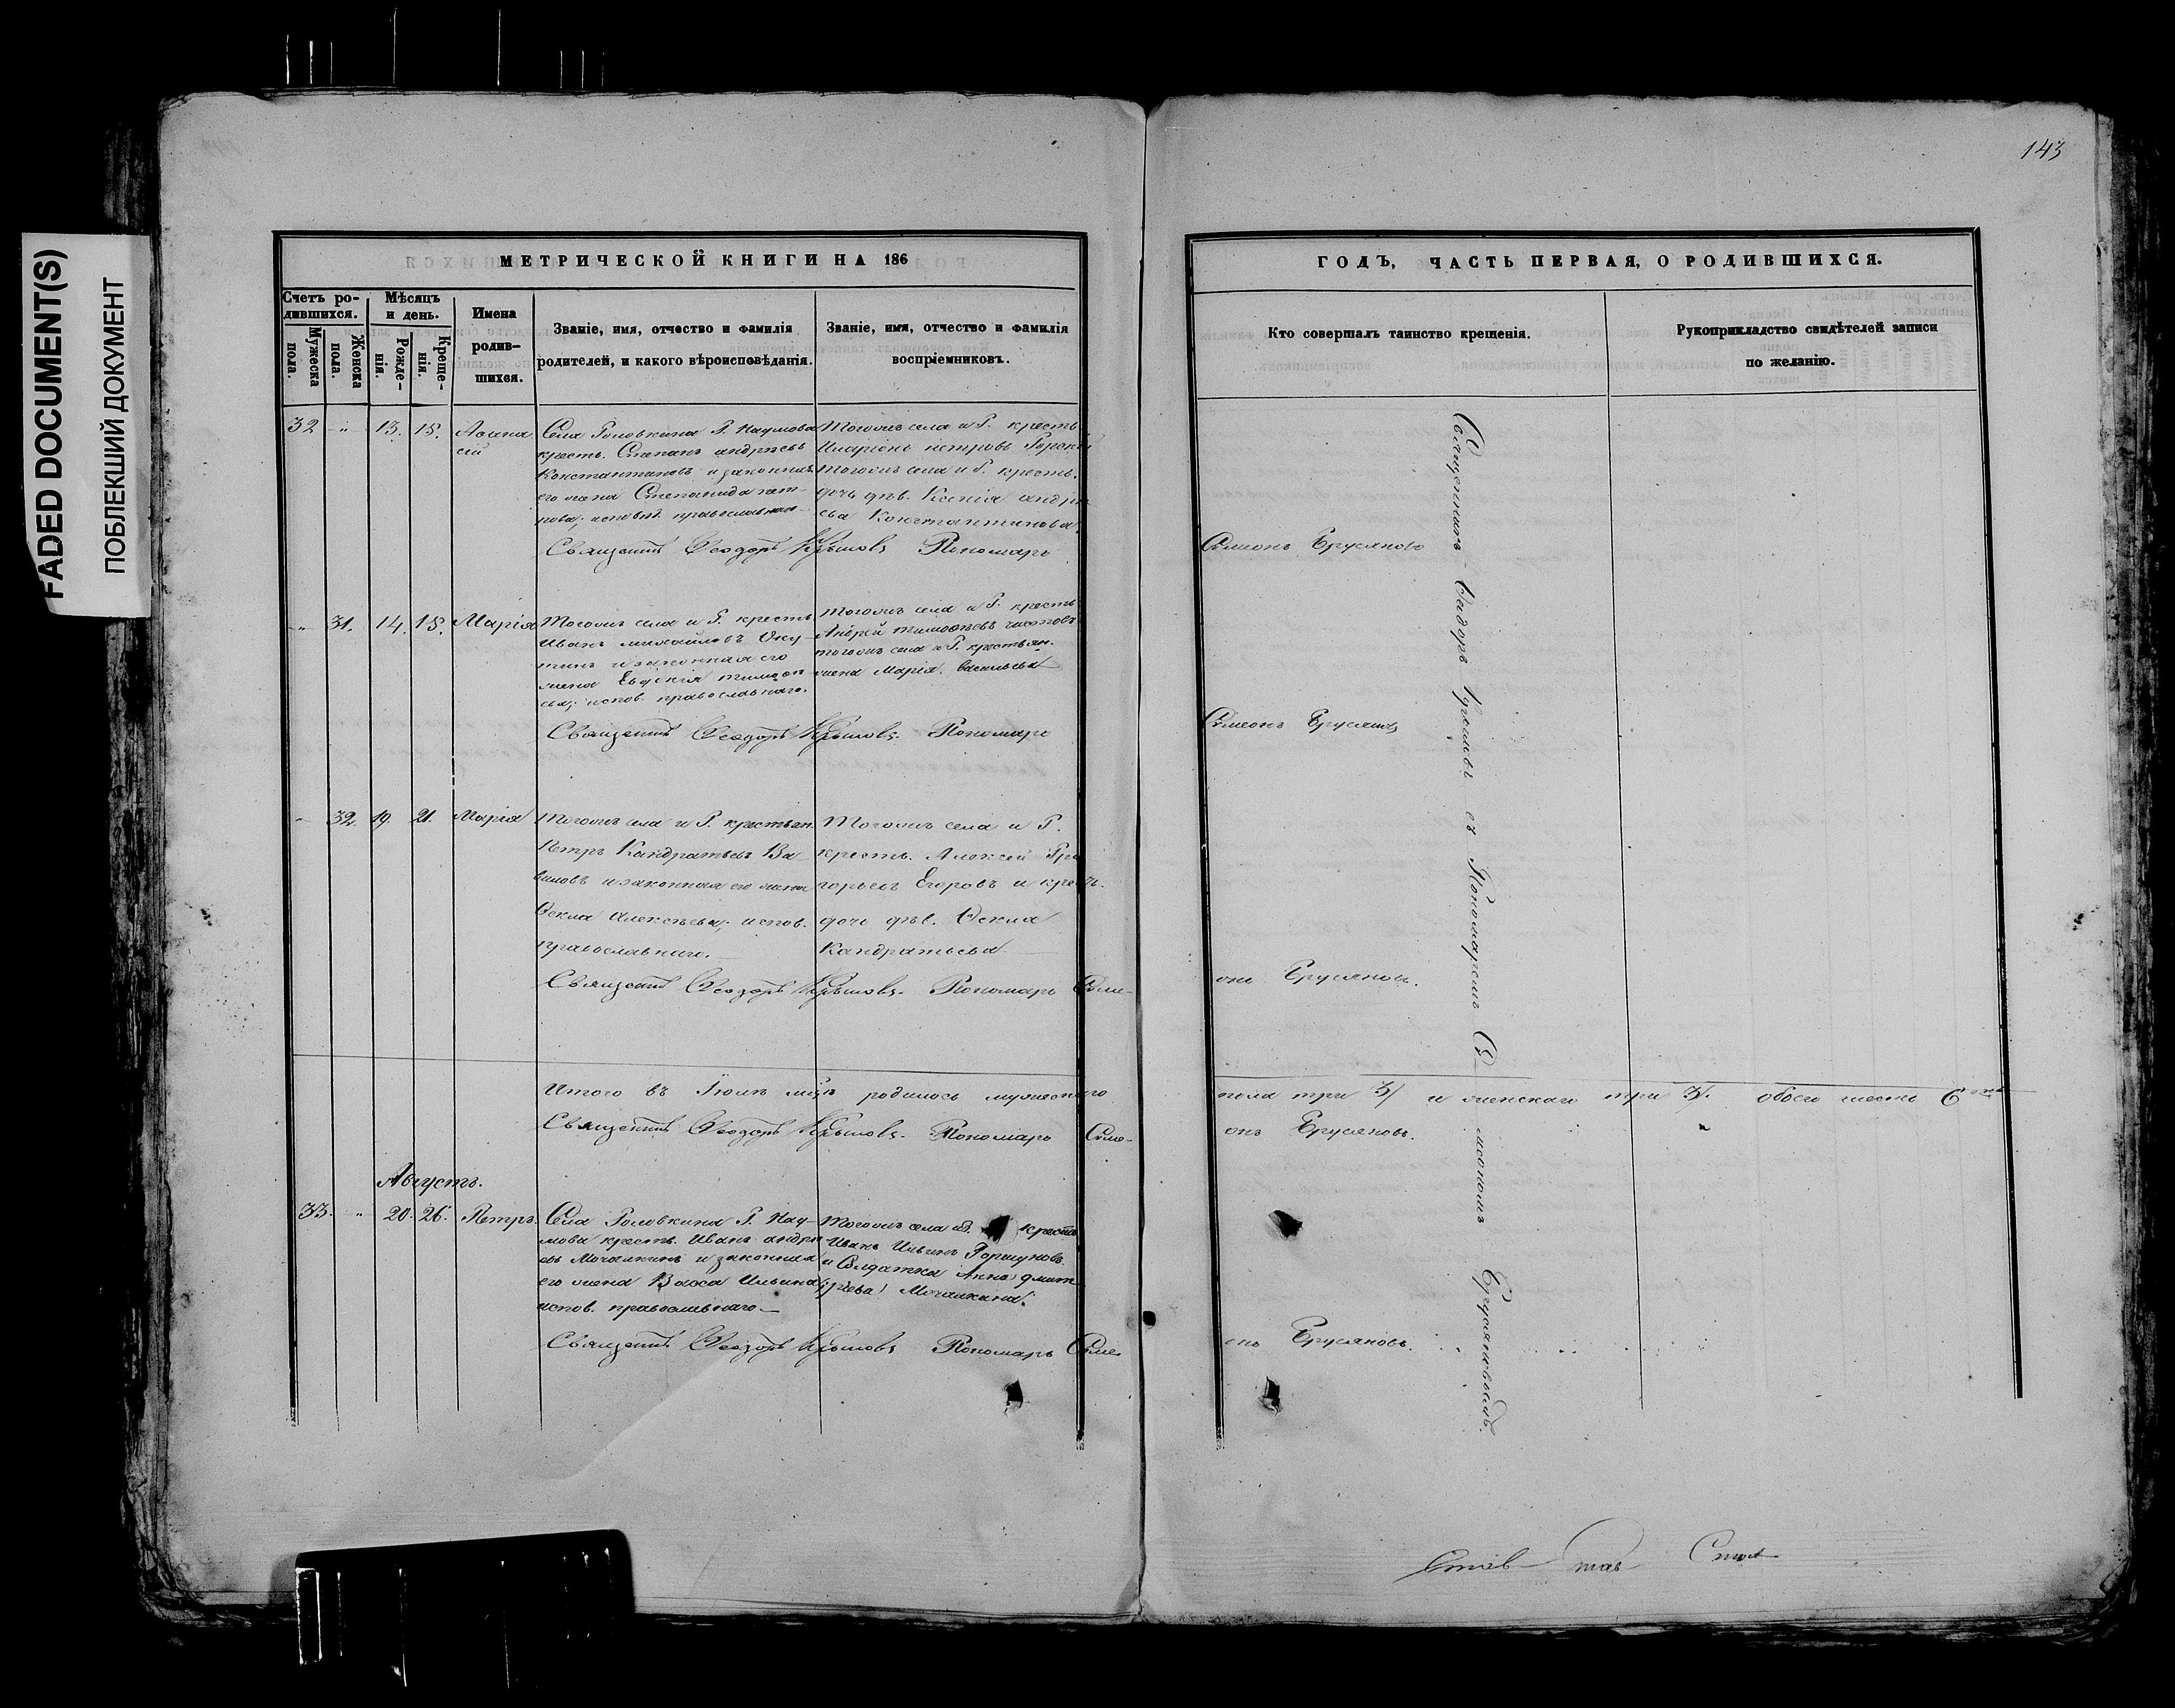 FADED DOCUMENT(S)
ПОБЛЕКШИЙ ДОКУМЕНТ
143
МЕТРИЧЕСКОЙ КНИГИ НА 186
ГОДЪ, ЧАСТЬ ПЕРВАЯ, О РОДИВШИХСЯ.
Счетъ ро-
дившихся.
Мужеска
пола.
Женска
пола.
Мѣсяцъ
и день.
Рожде-
нія.
Креще-
нія.
Имена
родив-
шихся.
Званіе, имя, отчество и фамилія
родителей, и какого вѣроисповѣданія.
Званіе, имя, отчество и фамилія
воспріемниковъ.
Кто совершалъ таинство крещенія.
Рукоприкладство свидѣтелей записи
по желанію.
32 " 13. 15.
Села Головкина Г. Наумова
кресть. Степанъ андрѣевъ
Константиновъ и законная
его жена Степанида пет-
рова; исповѣ. православнаго
Тогожъ села и Г. кресть.
Иларіонъ петровъ
тогожъ села и Г. кресть.
дочь дѣв. Ксенія андрѣ
ева Константинова.
Священникъ Ѳеодоръ Крыловъ Пономарь
Сѵмеонъ Ерусановъ
" 31. 14. 15. Марія
Тогожъ села и Г. кресть
Иванъ михайловъ Оку-
тинъ и законная его
жена Евдокія тимоѳѣ
ева; испов. православнаго.
тогожъ села и Г. кресть
Андрей тимоѳѣевъ
тогожъ села и Г. крестьян.
жена Марія. васильева
Священникъ Ѳеодоръ Крыловъ. Пономарь
Сѵмеонъ Ерусановъ
" 32. 19. 21. Марія
Тогожъ села и Г. крестьян.
Петръ Кандратьевъ Ва-
виловъ и законная его жена
Ѳекла Алексѣева; испов.
православнаго.
Тогожъ села и Г.
кресть. Алексей Гри
горьевъ Егоровъ и кресть.
дочь дѣв. Ѳекла
Кандратьева
Священникъ Ѳеодоръ Крыловъ. Пономарь Сѵме-
онъ Ерусановъ.
Итого въ Іюлѣ мцѣ родилось мужескаго
пола три 3/ и женскаго три 3/. обоего шесть 6
Священникъ Ѳеодоръ Крыловъ. Пономарь Сѵме-
онъ Ерусановъ.
Августъ.
33. " 20. 26. Петръ.
Села Головкина Г. Нау-
мова кресть. Иванъ андрѣ
евъ Мочалкинъ и законная
его жена Васса Ильина;
испов. православнаго.
Тогожъ села и Г. кресть
Иванъ Ильинъ Горшуновъ
и Солдатка Анна дмит
рѣева Мочалкина.
Священникъ Ѳеодоръ Крыловъ Пономарь Сѵме
онъ Ерусановъ.
Священникъ Ѳеодоръ Крыловъ съ Пономаремъ Сѵ
меономъ Ерусановымъ.